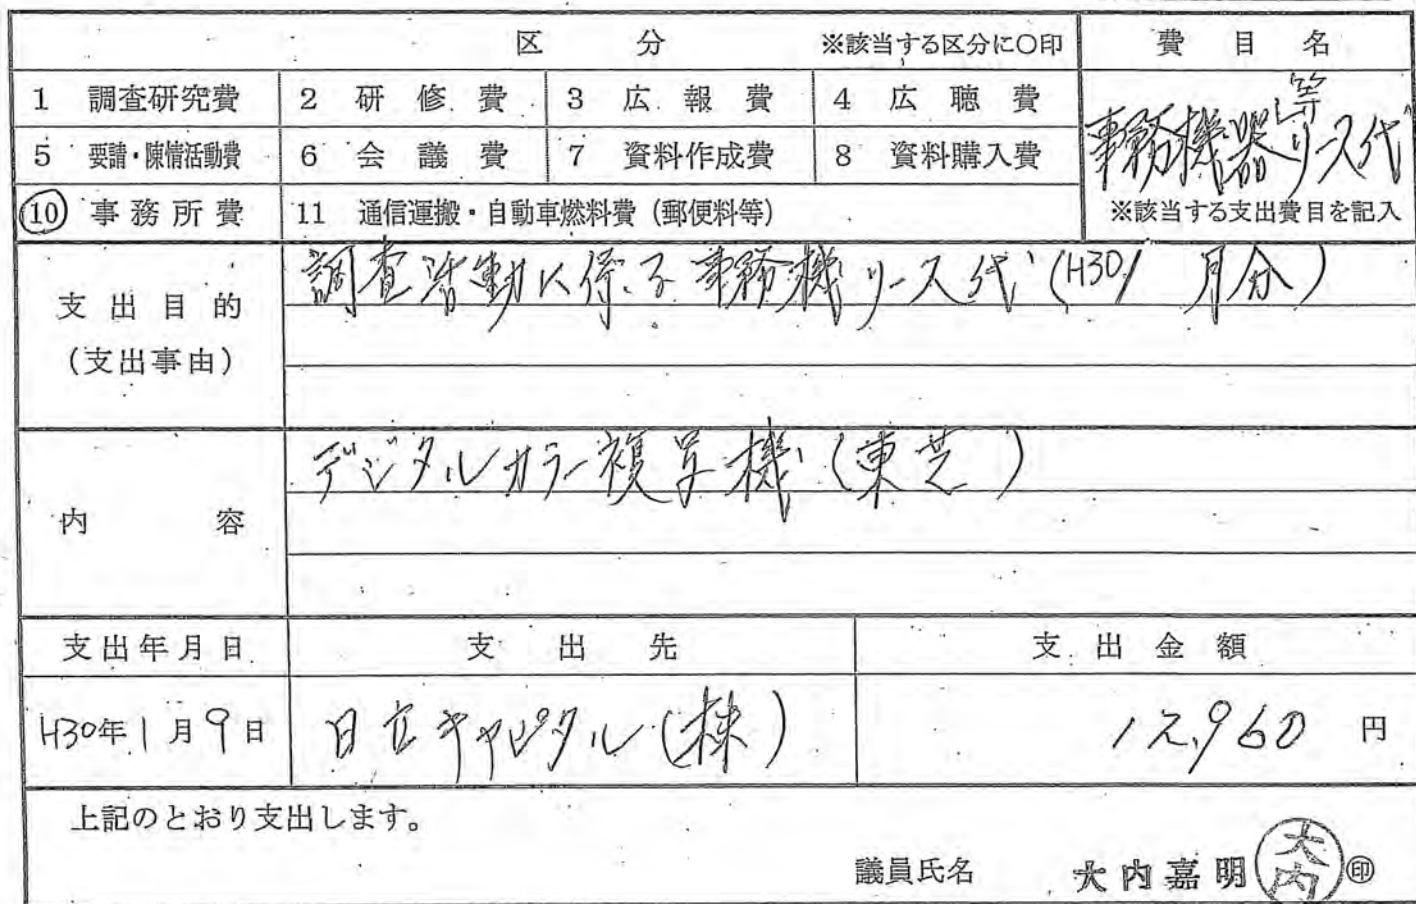 区分 ※該当する区分に○印 費目名
1 調査研究費 2 研修費 3 広報費 4 広聴費
等
事務機器リース代
5 要請・陳情活動費 6 会議費 7 資料作成費 8 資料購入費
10 事務所費 11 通信運搬・自動車燃料費(郵便料等) ※該当する支出費目を記入
支出目的
(支出事由)
調査活動に係る事務機リース代(H30/1月分)
内容
デジタルカラー複写機(東芝)
支出年月日 支出先 支出金額
H30年1月9日 日立キャピタル(株) 12,960円
上記のとおり支出します。
議員氏名 大内嘉明 大内 印